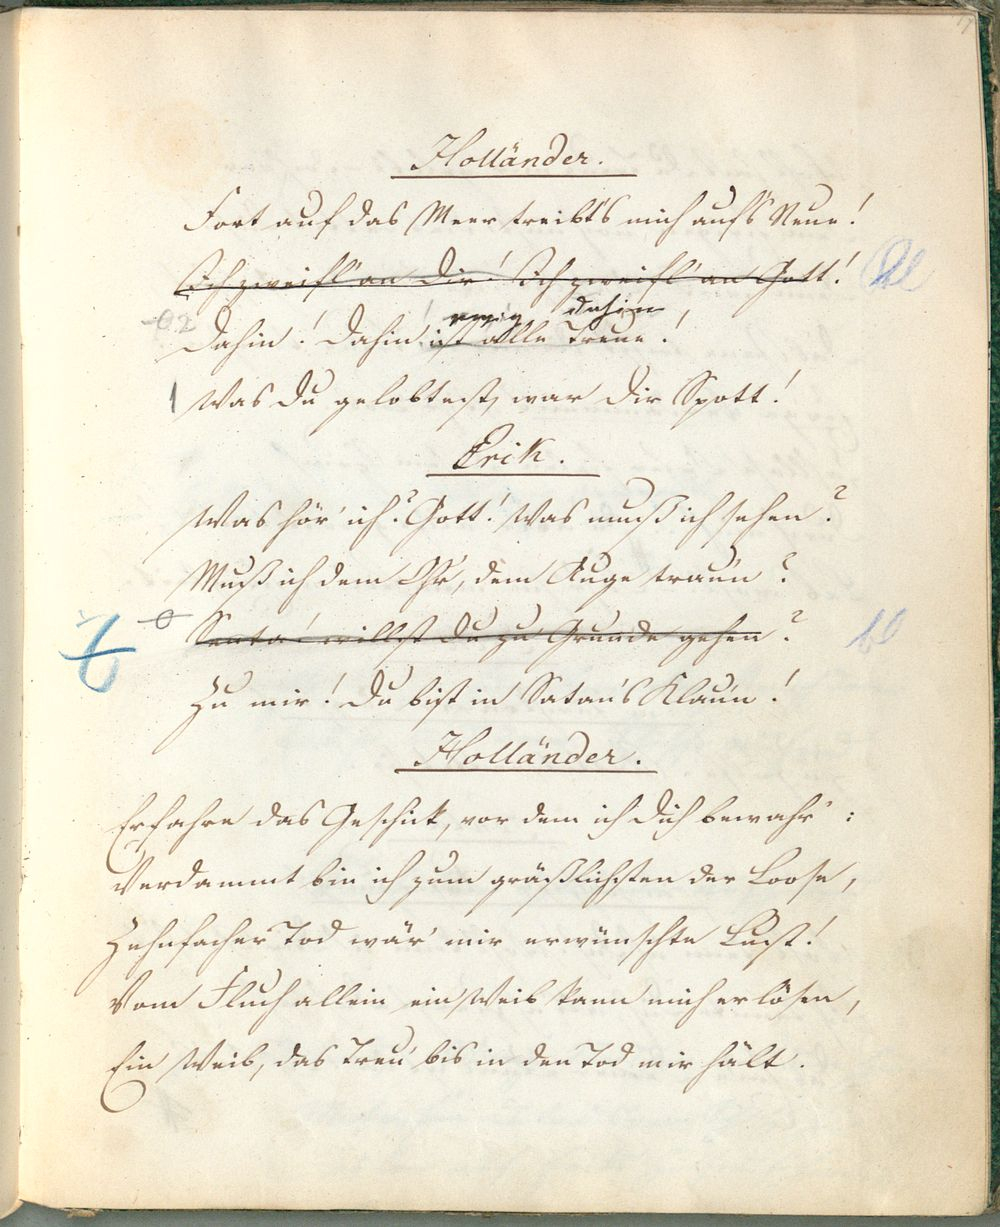 Holländer.
Fort auf das Meer treibt's mich auf's Neue!
Ich zweifl' an Dir! Ich zweifl' an Gott!
ewig dahin
Dahin! Dahin! ist alle Treue!
1 Was Du gelobtest, war Dir Spott!
Erik.
Was hör' ich? Gott! Was muß ich sehen?
Muß ich dem Ohr', dem Auge trau'n?
Senta! willst Du zu Grunde gehen?
Zu mir! Du bist in Satan's Klau'n!
Holländer.
Erfahre das Geschick, vor dem ich Dich bewahr':
Verdammt bin ich zum gräßlichsten der Loose,
Zehnfacher Tod wär' mir erwünschte Lust!
Vom Fluch allein ein Weib kann mich erlösen,
Ein Weib, das Treu' bis in den Tod mir hält.